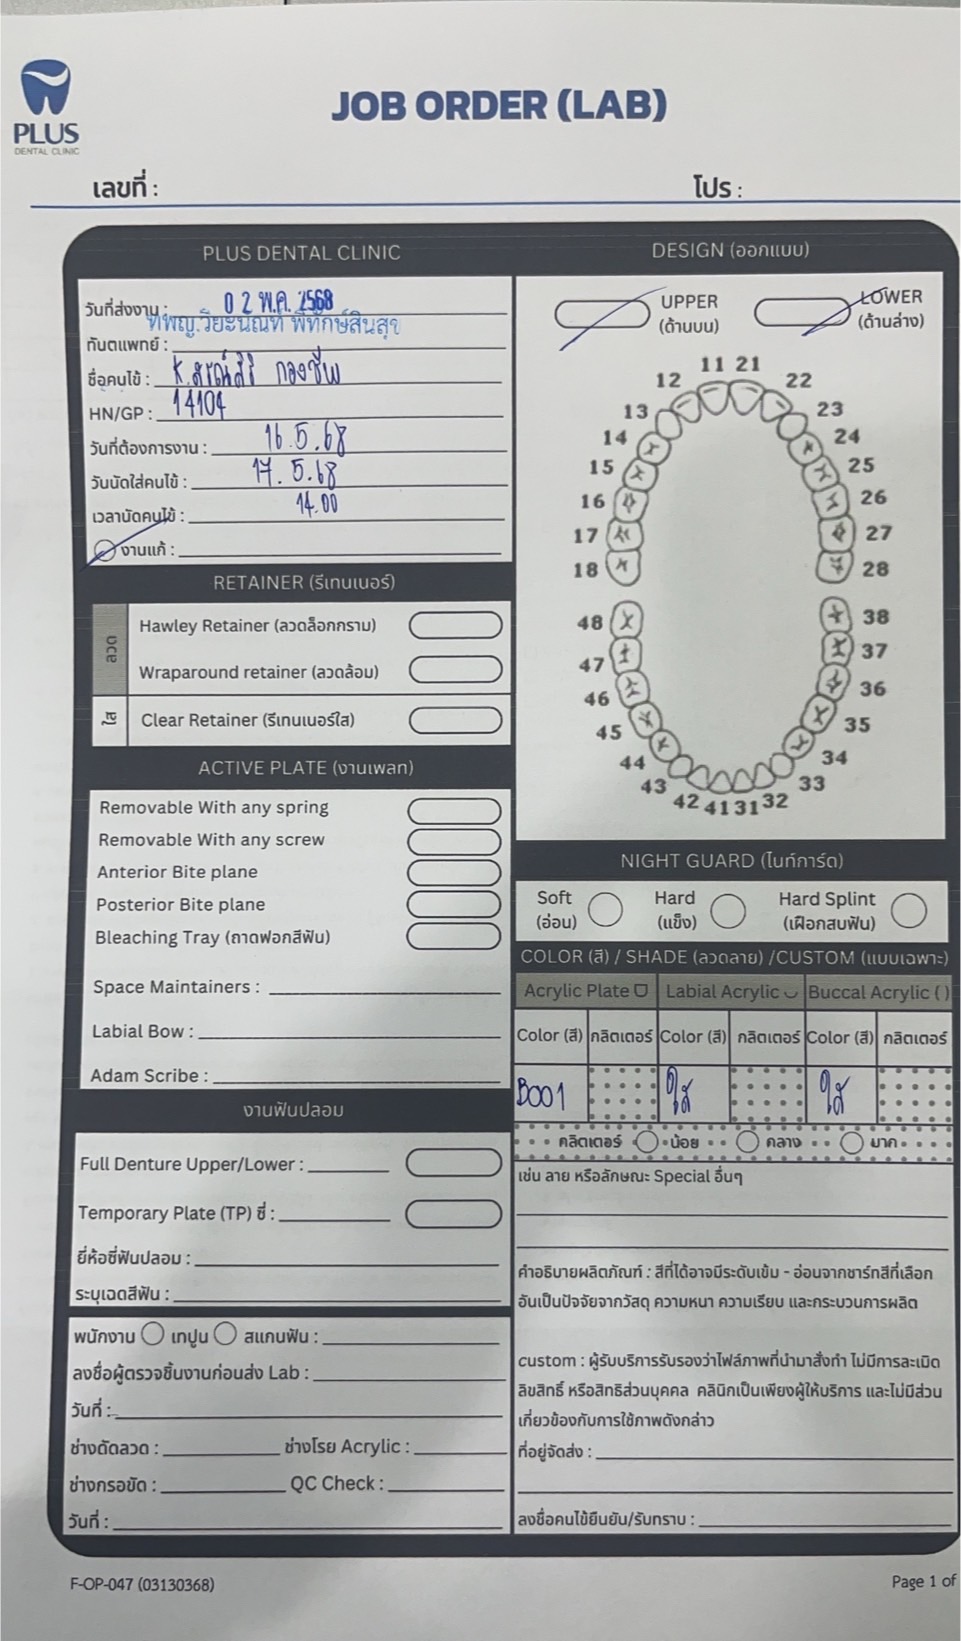 PLUS
DENTAL CLINIC
JOB ORDER (LAB)
เลขที่ :
โปร :
PLUS DENTAL CLINIC
วันที่ส่งงาน : 0 2 พ.ค. 2568
ทันตแพทย์ : ทพญ.วิยะนันท์ พิทักษ์สินสุข
ชื่อคนไข้ : K.
HN/GP : 14104
วันที่ต้องการงาน : 16.5.68
วันนัดใส่คนไข้ : 17.5.68
เวลานัดคนไข้ : 14.00
งานแก้ :
RETAINER (รีเทนเนอร์)
ลวด
Hawley Retainer (ลวดล็อกกราม)
Wraparound retainer (ลวดล้อม)
ใส
Clear Retainer (รีเทนเนอร์ใส)
ACTIVE PLATE (งานเพลท)
Removable With any spring
Removable With any screw
Anterior Bite plane
Posterior Bite plane
Bleaching Tray (ถาดฟอกสีฟัน)
Space Maintainers :
Labial Bow :
Adam Scribe :
งานฟันปลอม
Full Denture Upper/Lower :
Temporary Plate (TP) ซี่ :
ยี่ห้อซี่ฟันปลอม :
ระบุเฉดสีฟัน :
พนักงาน เทปูน สแกนฟัน :
ลงชื่อผู้ตรวจชิ้นงานก่อนส่ง Lab :
วันที่ :
ช่างดัดลวด : ช่างโรย Acrylic :
ช่างกรอขัด : QC Check :
วันที่ :
DESIGN (ออกแบบ)
UPPER LOWER
(ด้านบน) (ด้านล่าง)
11 21
12 22
13 23
14 24
15 25
16 26
17 27
18 28
48 38
47 37
46 36
45 35
44 34
43 33
42 41 31 32
NIGHT GUARD (ไนท์การ์ด)
Soft Hard Hard Splint
(อ่อน) (แข็ง) (เฝือกสบฟัน)
COLOR (สี) / SHADE (ลวดลาย) /CUSTOM (แบบเฉพาะ)
Acrylic Plate Labial Acrylic Buccal Acrylic ( )
Color (สี) กลิตเตอร์ Color (สี) กลิตเตอร์ Color (สี) กลิตเตอร์
B001 ใส ใส
กลิตเตอร์ น้อย กลาง มาก
เช่น ลาย หรือลักษณะ Special อื่นๆ
คำอธิบายผลิตภัณฑ์ : สีที่ได้อาจมีระดับเข้ม - อ่อนจากชาร์ทสีที่เลือก
อันเป็นปัจจัยจากวัสดุ ความหนา ความเรียบ และกระบวนการผลิต
custom : ผู้รับบริการรับรองว่าไฟล์ภาพที่นำมาสั่งทำ ไม่มีการละเมิด
ลิขสิทธิ์ หรือสิทธิส่วนบุคคล คลินิกเป็นเพียงผู้ให้บริการ และไม่มีส่วน
เกี่ยวข้องกับการใช้ภาพดังกล่าว
ที่อยู่จัดส่ง :
ลงชื่อคนไข้ยืนยัน/รับทราบ :
F-OP-047 (03130368)
Page 1 of